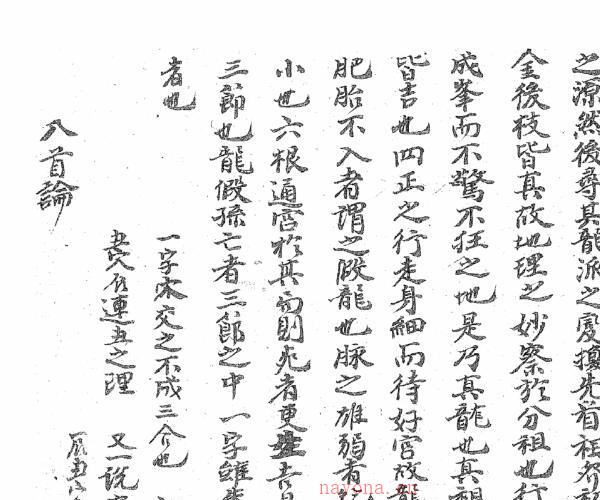 之源然後尋其龍派之變換先看祖
金後枝皆真故地理之妙察於分祖也行
成峯而不驚不狂之地是乃真龍也真
皆吉也四正之行走身細而待好宮故
肥胎不入者謂之殴龍也脉之雄弱者
小也六根通宮於其則死者更吉
三節也龍假孫亡者三節之中一字雖
者也
一字宋交之不成三介也
連五之理 又一說
八首論
nayona.cn